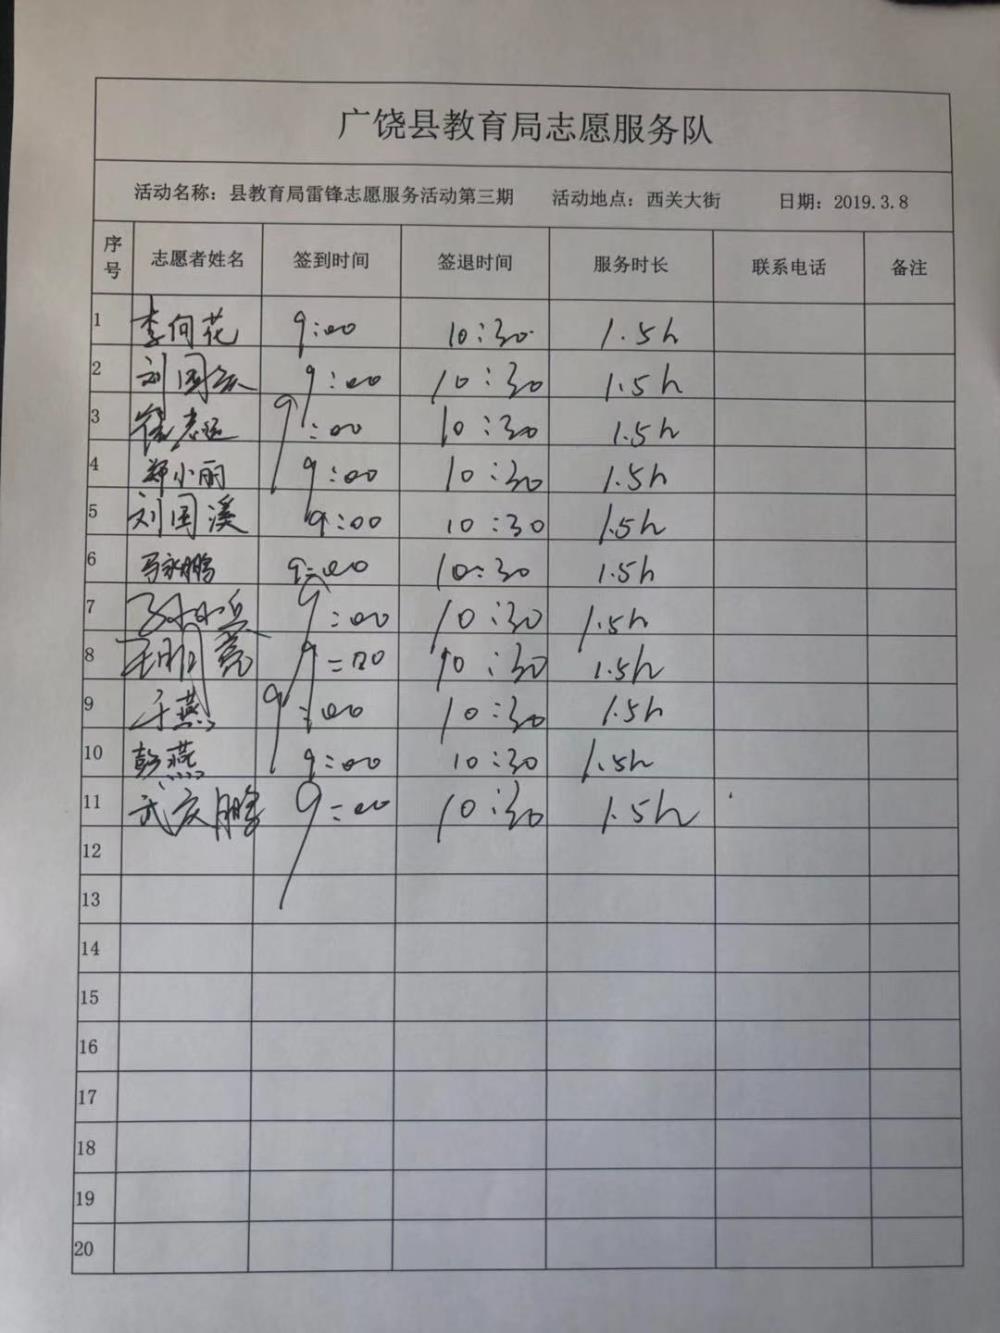 广饶县教育局志愿服务队
活动名称：县教育局雷锋志愿服务活动第三期 活动地点：西关大街 日期：2019.3.8
序号 志愿者姓名 签到时间 签退时间 服务时长 联系电话 备注
1 李向花 9:00 10:30 1.5h
2 刘国 9:00 10:30 1.5h
3 志远 9:00 10:30 1.5h
4 郑小丽 9:00 10:30 1.5h
5 刘国溪 9:00 10:30 1.5h
6 马永鹏 9:00 10:30 1.5h
7 9:00 10:30 1.5h
8 王明亮 9:00 10:30 1.5h
9 于燕 9:00 10:30 1.5h
10 彭燕 9:00 10:30 1.5h
11 武庆鹏 9:00 10:30 1.5h
12
13
14
15
16
17
18
19
20